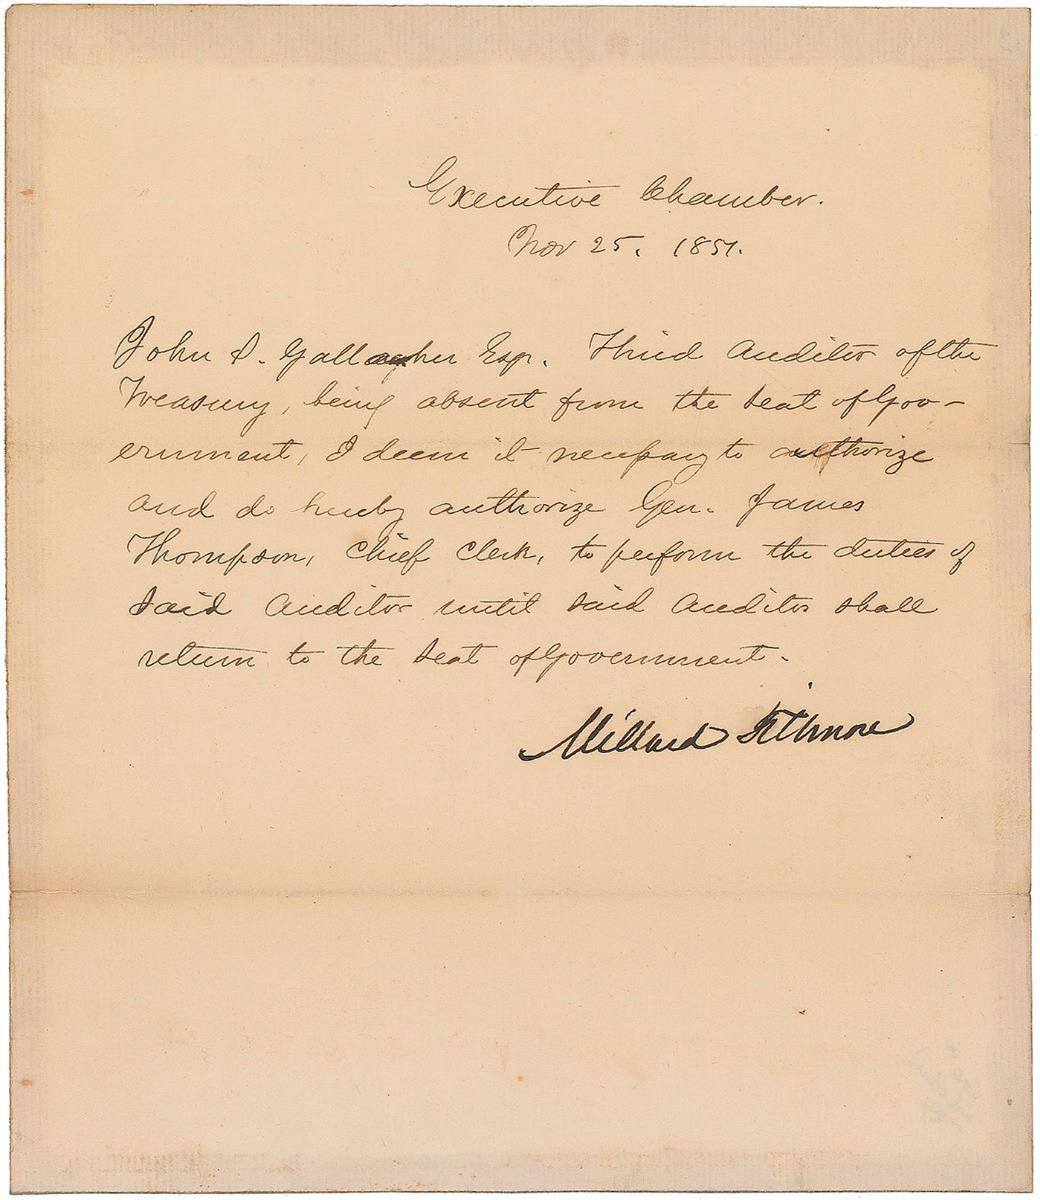 Executive Chamber.
Nov 25. 1851.
John S. Gallagher Esqr. Third Auditor of the
Treasury, being absent from the seat of Gov-
ernment, I deem it necessary to authorize
and do hereby authorize Gen. James
Thompson, Chief Clerk, to perform the duties of
said Auditor until said Auditor shall
return to the seat of Government.
Millard Fillmore